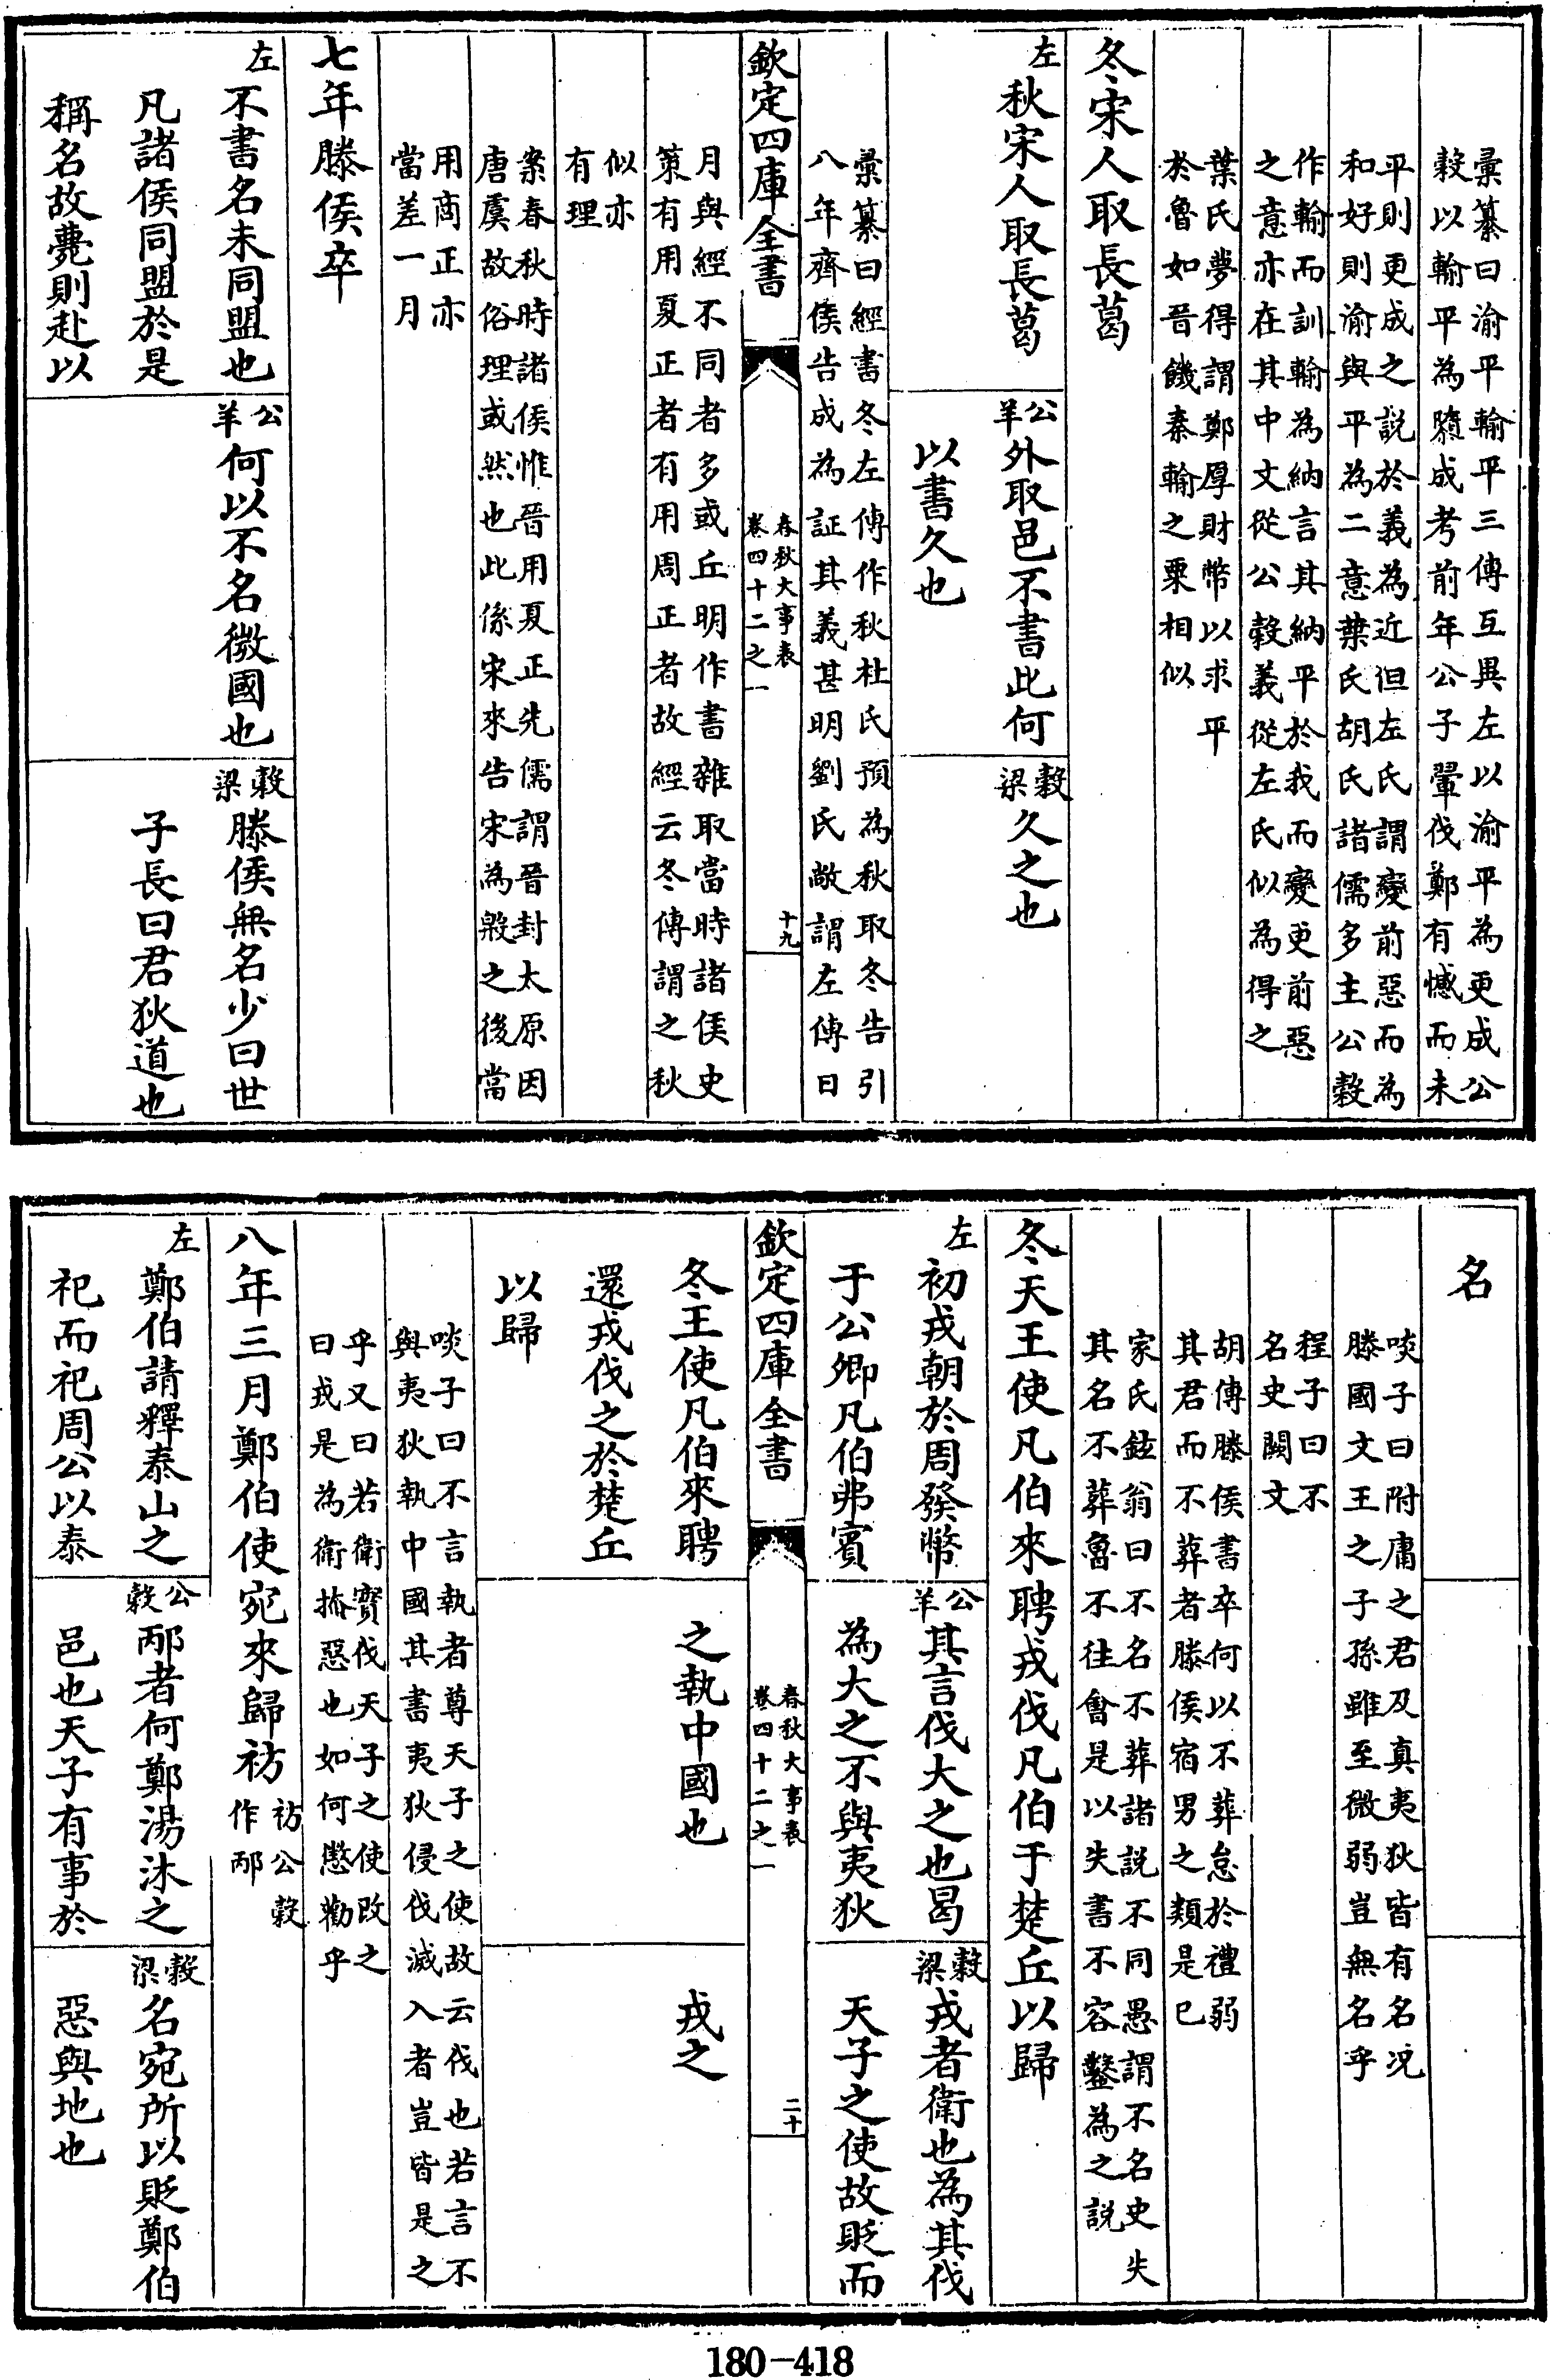 彚纂曰渝平輸平三傳互異左以渝平為更成公
糓以輸平為隳成考前年公子翬伐鄭有憾而未
平則更成之説於義為近但左氏謂變前惡而為
和好則渝與平為二意葉氏胡氏諸儒多主公糓
作輸而訓輸為納言其納平於我而變更前惡
之意亦在其中文從公糓義從左氏似為得之
葉氏夢得謂鄭厚財幣以求平
於魯如晉饑秦輸之粟相似
冬宋人取長葛
左
秋宋人取長葛
公羊
外取邑不書此何
以書久也
糓梁
久之也
彚纂曰經書冬左傳作秋杜氏預為秋取冬告引
八年齊侯告成為証其義甚明劉氏敞謂左傳日
欽定四庫全書
春秋大事表
卷四十二之一
十九
月與經不同者多或丘明作書雜取當時諸侯史
策有用夏正者有用周正者故經云冬傳謂之秋
似亦
有理
案春秋時諸侯惟晉用夏正先儒謂晉封太原因
唐虞故俗理或然也此係宋來告宋為殷之後當
用商正亦
當差一月
七年滕侯卒
左
不書名未同盟也
凡諸侯同盟於是
稱名故薨則赴以
公羊
何以不名微國也
糓梁
滕侯無名少曰世
子長曰君狄道也
名
啖子曰附庸之君及真夷狄皆有名况
滕國文王之子孫雖至微弱豈無名乎
程子曰不
名史闕文
胡傳滕侯書卒何以不葬怠於禮弱
其君而不葬者滕侯宿男之類是已
家氏鉉翁曰不名不葬諸説不同愚謂不名史失
其名不葬魯不往會是以失書不容鑿為之説
冬天王使凡伯來聘戎伐凡伯于楚丘以歸
左
初戎朝於周發幣
于公卿凡伯弗賓
公羊
其言伐大之也曷
為大之不與夷狄
糓梁
戎者衛也為其伐
天子之使故貶而
欽定四庫全書
春秋大事表
卷四十二之一
二十
冬王使凡伯來聘
還戎伐之於楚丘
以歸
之執中國也
戎之
啖子曰不言執者尊天子之使故云伐也若言不
與夷狄執中國其書夷狄侵伐滅入者豈皆是之
乎又曰若衛實伐天子之使改之
曰戎是為衛掩惡也如何懲勸乎
八年三月鄭伯使宛來歸祊
祊公糓
作邴
左
鄭伯請釋泰山之
祀而祀周公以泰
公糓
邴者何鄭湯沐之
邑也天子有事於
糓梁
名宛所以貶鄭伯
惡與地也
180-418